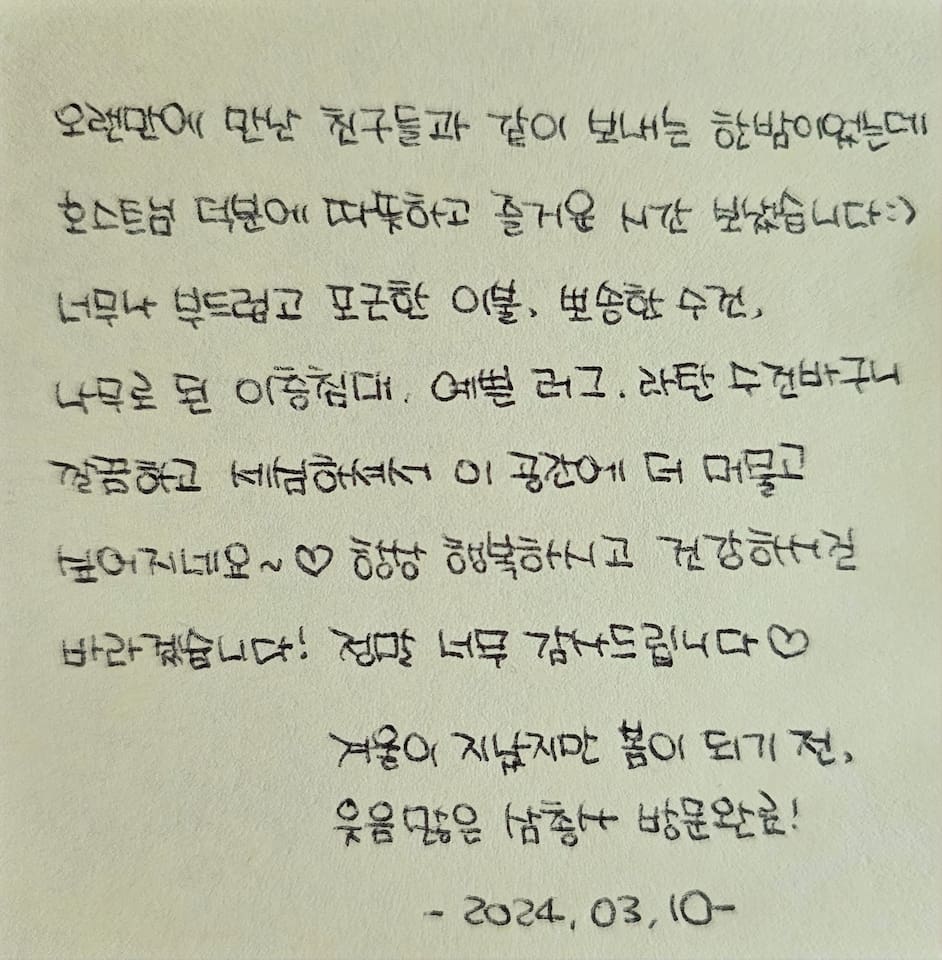 오랜만에 만난 친구들과 같이 보내는 한밤이었는데
호스트님 덕분에 따뜻하고 즐거운 시간 보냈습니다:)
너무나 부드럽고 포근한 이불, 뽀송한 수건,
나무로 된 이층침대, 예쁜 러그, 라탄 수건바구니
깔끔하고 세심하셔서 이 공간에 더 머물고
싶어지네요~♡ 항상 행복하시고 건강하시길
바라겠습니다! 정말 너무 감사드립니다♡
겨울이 지났지만 봄이 되기 전,
웃음많은 삼총사 방문완료!
- 2024, 03, 10-